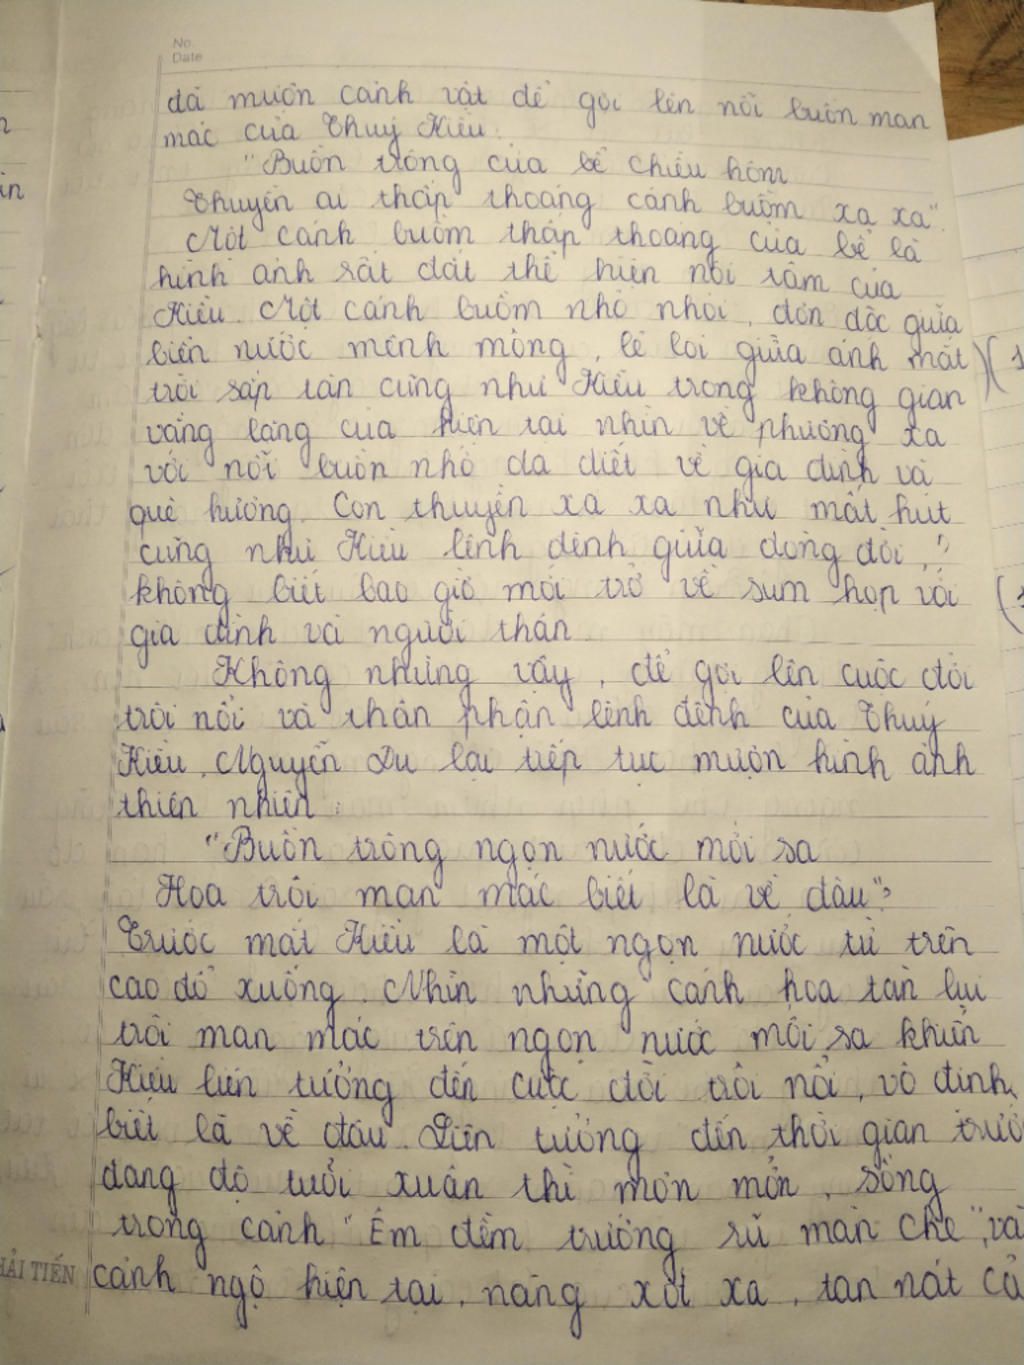 No.
Date
đã mượn cảnh vật để gợi lên nỗi buồn man
mác của Thuý Kiều.
"Buồn trông cửa bể chiều hôm
Thuyền ai thấp thoáng cánh buồm xa xa".
Một cánh buồm thấp thoáng cửa bể là
hình ảnh rất đắt thể hiện nội tâm của
Kiều. Một cánh buồm nhỏ nhoi, đơn độc giữa
biển nước mênh mông, lẻ loi giữa ánh mặt
trời sắp tàn cũng như Kiều trong không gian
vắng lặng của hiện tại nhìn về phương xa
với nỗi buồn nhớ da diết về gia đình và
quê hương. Con thuyền xa xa như mất hút
cũng như Kiều lênh đênh giữa dòng đời,
không biết bao giờ mới trở về sum họp với
gia đình và người thân
Không những vậy, để gợi lên cuộc đời
trôi nổi và thân phận lênh đênh của Thuý
Kiều, Nguyễn Du lại tiếp tục mượn hình ảnh
thiên nhiên:
"Buồn trông ngọn nước mới sa
Hoa trôi man mác biết là về đâu"?
Trước mắt Kiều là một ngọn nước từ trên
cao đổ xuống. Nhìn những cánh hoa tàn lụi
trôi man mác trên ngọn nước mới sa khiến
Kiều liên tưởng đến cuộc đời trôi nổi, vô định,
biết là về đâu. Liên tưởng đến thời gian trướ
đang độ tuổi xuân thì mơn mởn, sống
trong cảnh "Êm đềm trướng rủ màn che", và
cảnh ngộ hiện tại, nàng xót xa, tan nát cả
HẢI TIẾN